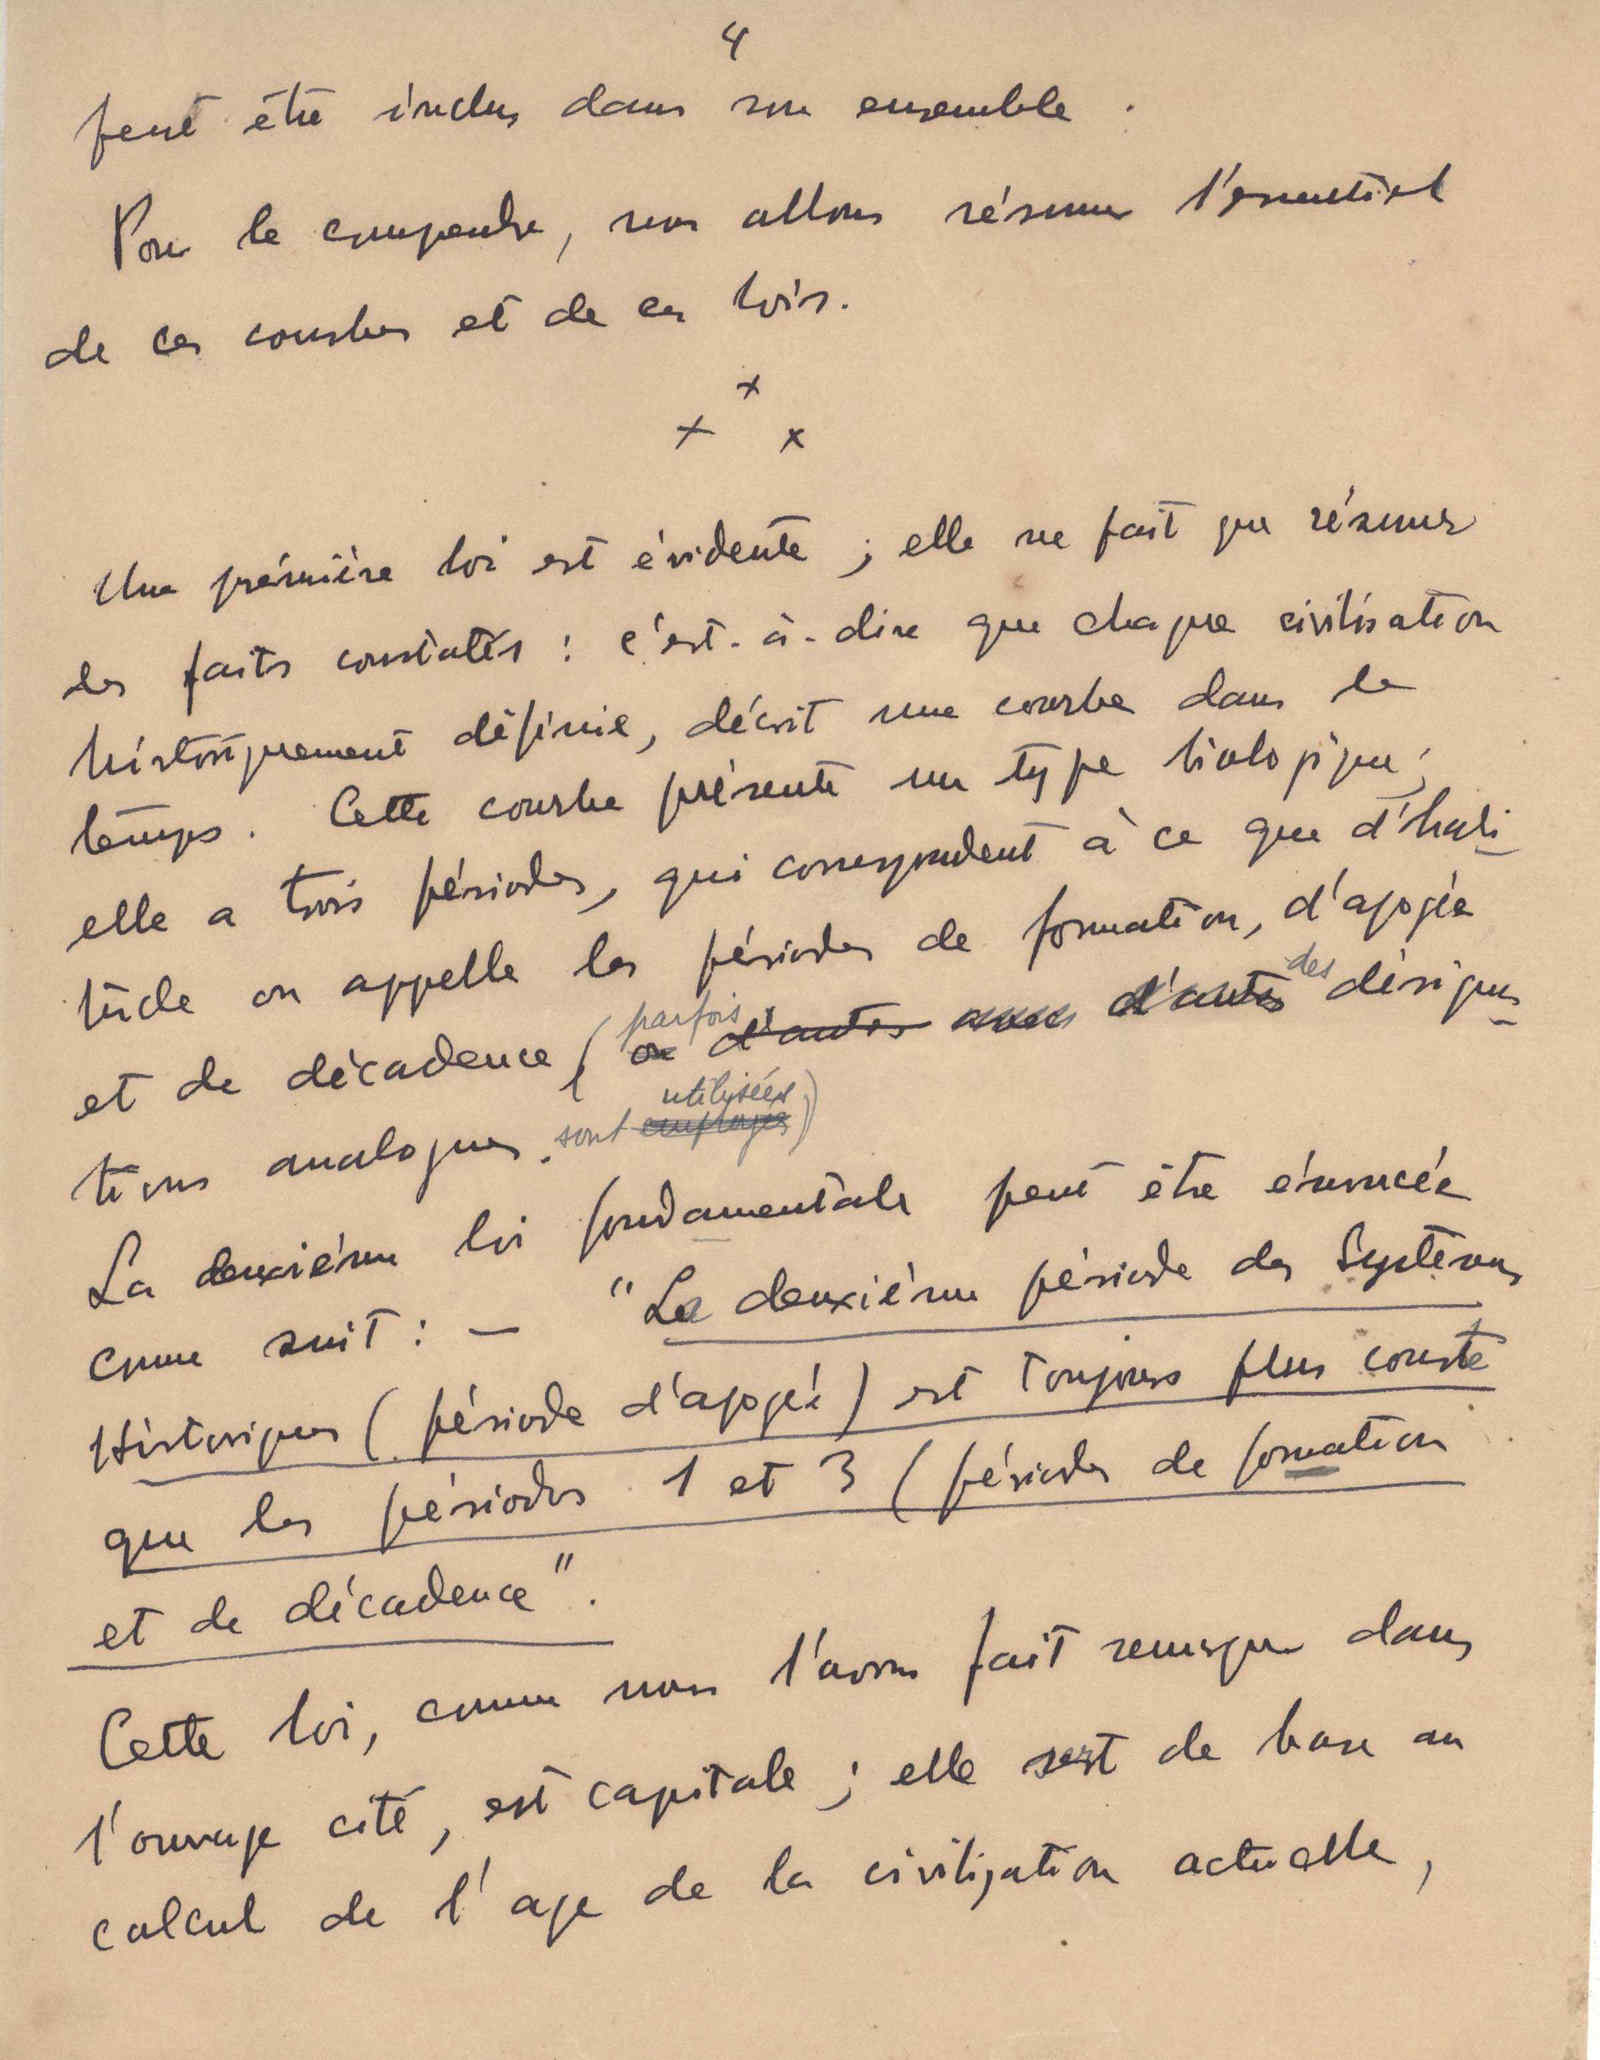 4
peut être inclus dans son ensemble.
Pour le comprendre, nous allons résumer l'essentiel
de ces courbes et de ces lois.
x
x x
Une première loi est évidente ; elle ne fait que résumer
les faits constatés : c'est-à-dire que chaque civilisation
historiquement définie, décrit une courbe dans le
temps. Cette courbe présente un type biologique ;
elle a trois périodes, qui correspondent à ce que d'habi
tude on appelle les périodes de formation, d'apogée
et de décadence ( parfois ou d'autres d'autres des désigna
tions analogues. sont employées utilisées)
La deuxième loi fondamentale peut être énoncée
comme suit : — "La deuxième période des Systèmes
Historiques (période d'apogée) est toujours plus courte
que les périodes 1 et 3 (périodes de formation
et de décadence".
Cette loi, comme nous l'avons fait remarquer dans
l'ouvrage cité, est capitale ; elle sert de base au
calcul de l'age de la civilisation actuelle,